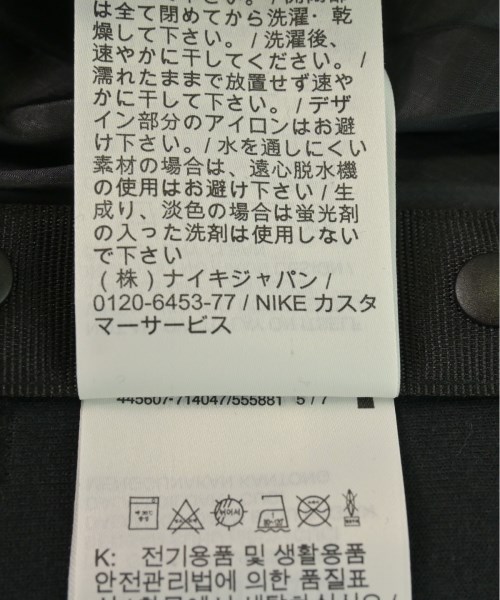 下さい。/開閉部
は全て閉めてから洗濯・乾
燥して下さい。/洗濯後、
速やかに干してください。/
濡れたままで放置せず速や
かに干して下さい。/デザ
イン部分のアイロンはお避
け下さい。/水を通しにくい
素材の場合は、遠心脱水機
の使用はお避け下さい/生
成り、淡色の場合は蛍光剤
の入った洗剤は使用しない
で下さい
(株)ナイキジャパン/
0120-6453-77/NIKE カスタ
マーサービス
445607-714047/555881 5/7
K: 전기용품 및 생활용품
안전관리법에 의한 품질표